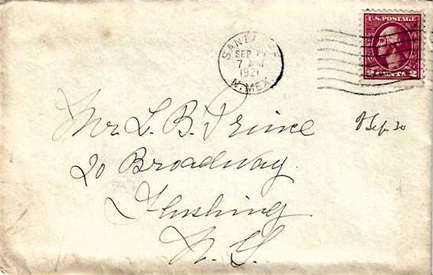 SANTA FE
SEP
7 AM
1921
N. MEX.
U.S. POSTAGE
2 CENTS 2
Mr L. B. Prince
Sep. 20
20 Broadway.
Flushing
N. Y.